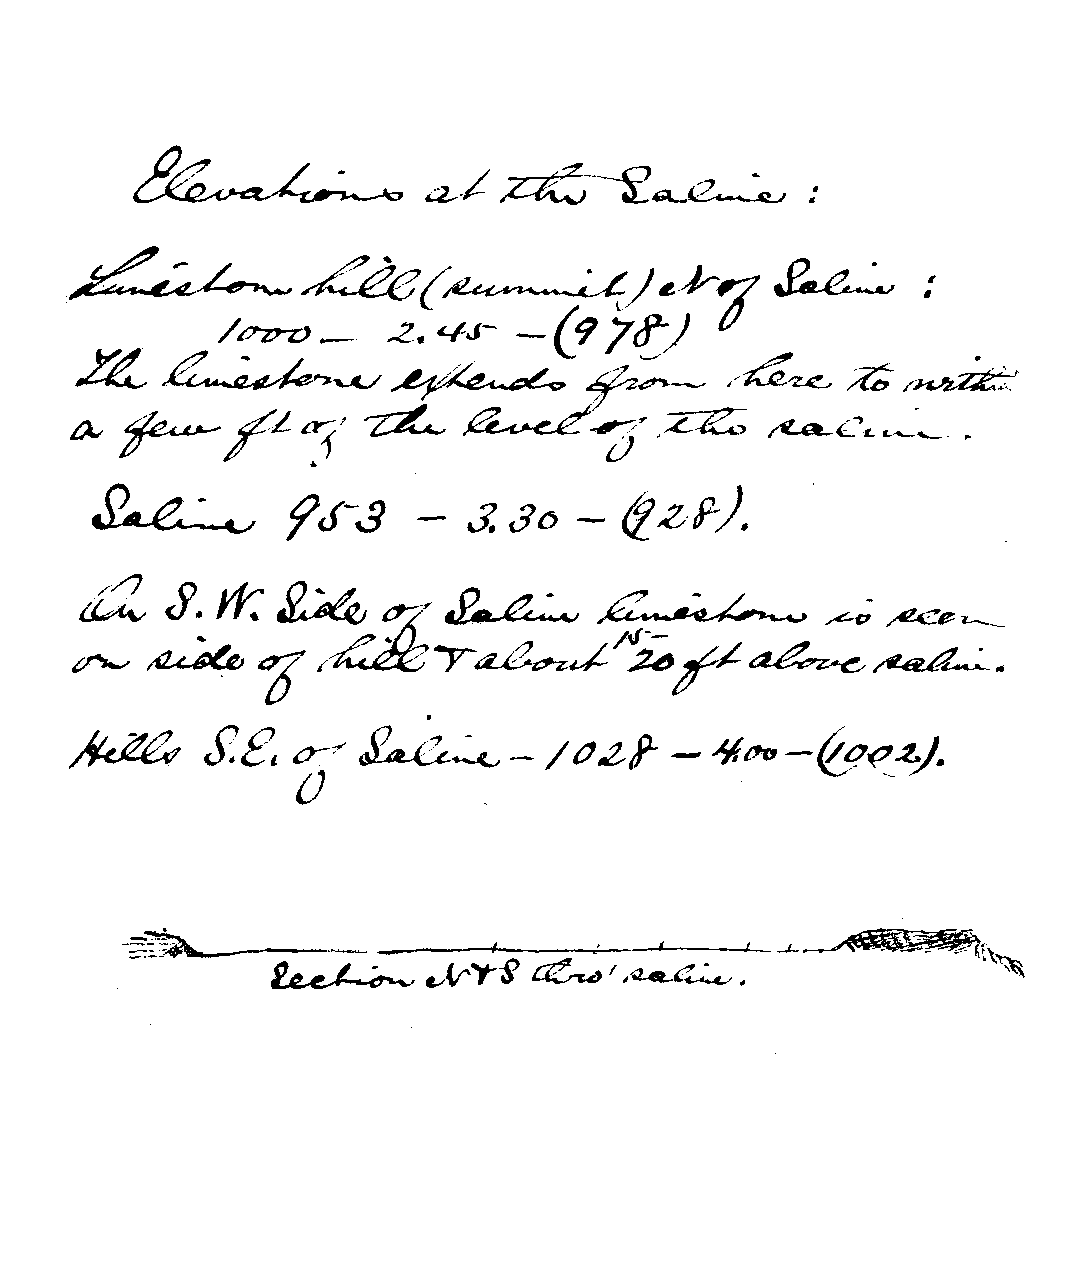 Elevations at the Saline :
Limestone hill (summit) N of Saline :
1000 - 2.45 - (978)
The limestone extends from here to within
a few ft of the level of the saline.
Saline 953 - 3.30 - (928).
On S.W. Side of Saline limestone is seen
on side of hill & about 15-20 ft above saline.
Hills S.E. of Saline - 1028 - 4.00 - (1002).
Section N & S thro' saline.